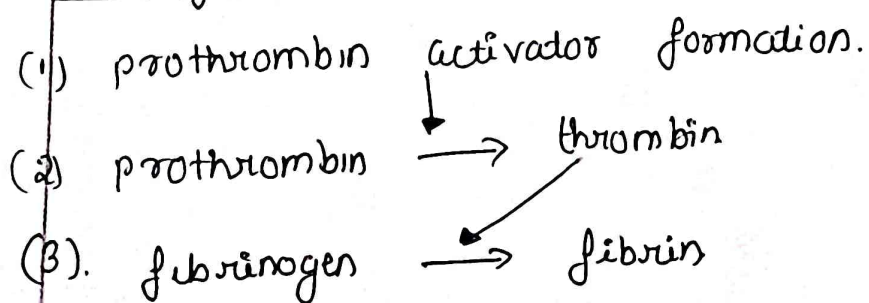 (1) prothrombin activator formation.
(2) prothrombin → thrombin
(3). fibrinogen → fibrin